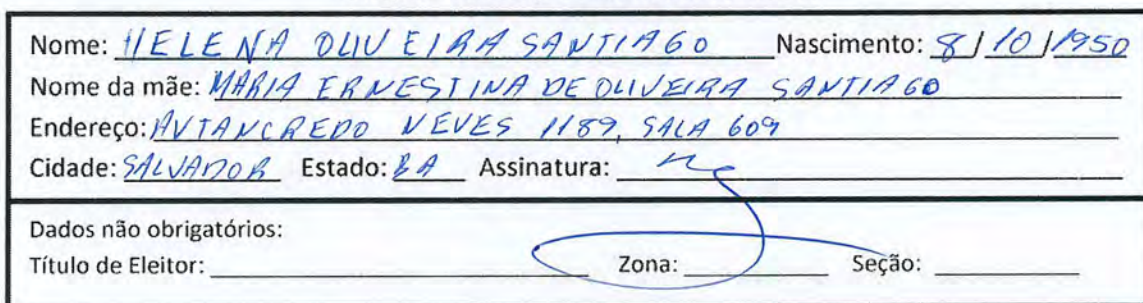 Nome: HELENA OLIVEIRA SANTIAGO Nascimento: 8/10/1950
Nome da mãe: MARIA ERNESTINA DE OLIVEIRA SANTIAGO
Endereço: AV TANCREDO NEVES 1189, SALA 609
Cidade: SALVADOR Estado: BA Assinatura:
Dados não obrigatórios:
Título de Eleitor: Zona: Seção: